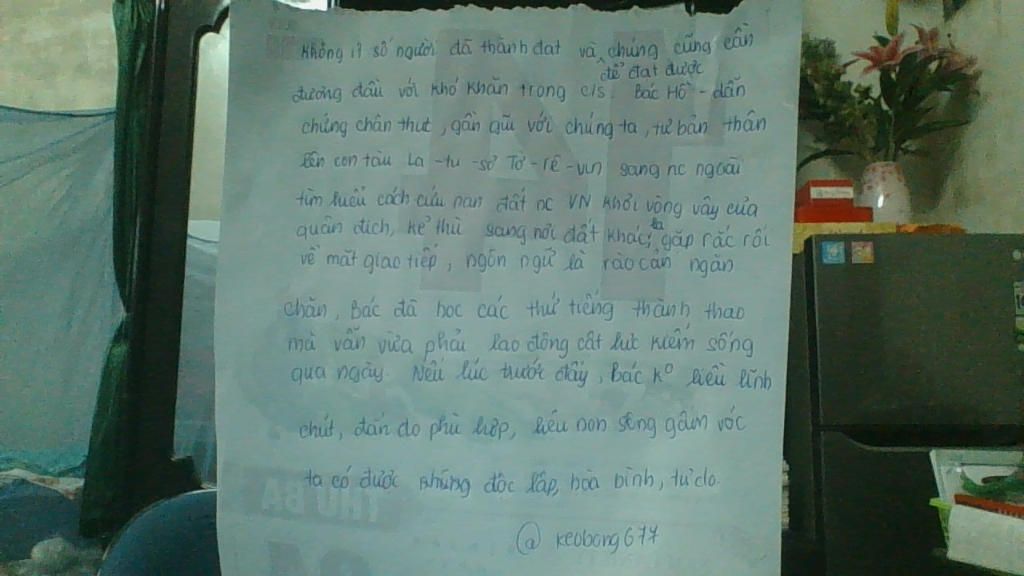 Không ít số người đã thành đạt và chúng cũng cần
để đạt được
đương đầu với khó khăn trong c/s. Bác Hồ - dẫn
chứng chân thực, gần gũi với chúng ta, tự bản thân
lên con tàu La-tu-sơ Tơ-rê-vin sang nc ngoài
tìm hiểu cách cứu nạn đất nc VN khỏi vòng vây của
quân địch, kẻ thù sang nơi đất khác, ta gặp rắc rối
về mặt giao tiếp, ngôn ngữ là rào cản ngăn
chặn, Bác đã học các thứ tiếng thành thạo
mà vẫn vừa phải lao động cật lực kiếm sống
qua ngày. Nếu lúc trước đây, Bác k° liều lĩnh
chút, đắn đo phù hợp, liệu non sông gấm vóc
ta có được những độc lập, hòa bình, tự do.
@ keobong677
THỨ BA